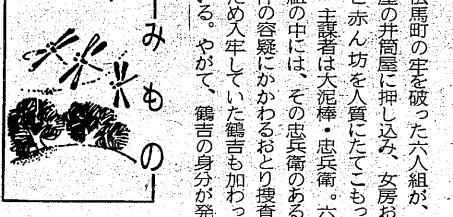 伝馬町の牢を破った六人組が、
屋の井筒屋に押し込み、女房お
と赤ん坊を人質にたてこもっ
主謀者は大泥棒・忠兵衛。六
組の中には、その忠兵衛のある
件の容疑にかかわるおとり捜査
ため入牢していた鶴吉も加わっ
る。やがて、鶴吉の身分が発
みもの